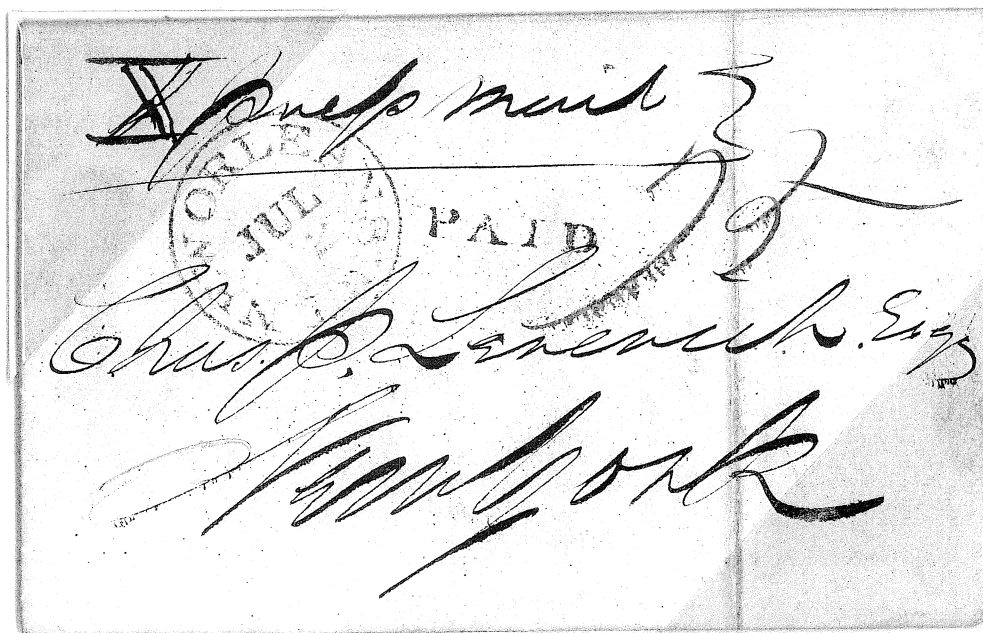 Express Mail
NEW ORLEANS
JUL
PAID
75
Chas. P. Leverich. Esq
New York